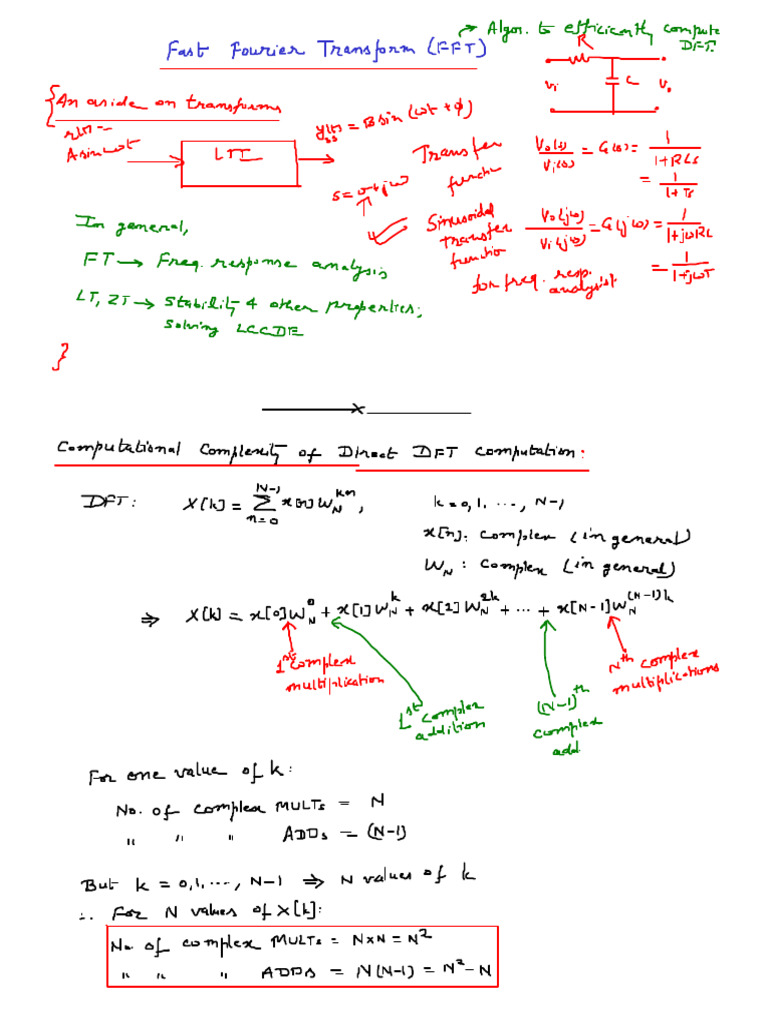 Fast Fourier Transform (FFT) → Algor. to efficiently compute DFT.
{An aside on transforms
r(t) =
A sin ωt
LTI
y_ss(t) = B sin (ωt + φ)
s = σ + jω
R
C
Vi
Vo
Transfer function
Vo(s)/Vi(s) = G(s) = 1/(1+RCs)
= 1/(1+Ts)
Sinusoidal transfer function
Vo(jω)/Vi(jω) = G(jω) = 1/(1+jωRC)
= 1/(1+jωT)
for freq. resp. analysis
In general,
FT → Freq. response analysis
LT, ZT → Stability & other properties;
Solving LCCDE
}
Computational Complexity of Direct DFT Computation:
DFT: X[k] = Σ_{n=0}^{N-1} x[n] W_N^{kn}, k = 0, 1, ..., N-1
x[n]: Complex (in general)
W_N : Complex (in general)
⇒ X[k] = x[0]W_N^0 + x[1]W_N^k + x[2]W_N^{2k} + ... + x[N-1]W_N^{(N-1)k}
1st Complex multiplication
1st Complex addition
(N-1)th complex add
Nth complex multiplications
For one value of k:
No. of complex MULTs = N
" " " ADDs = (N-1)
But k = 0, 1, ..., N-1 ⇒ N values of k
∴ For N values of X[k]:
No. of complex MULTs = N×N = N²
" " " ADDs = N(N-1) = N² - N